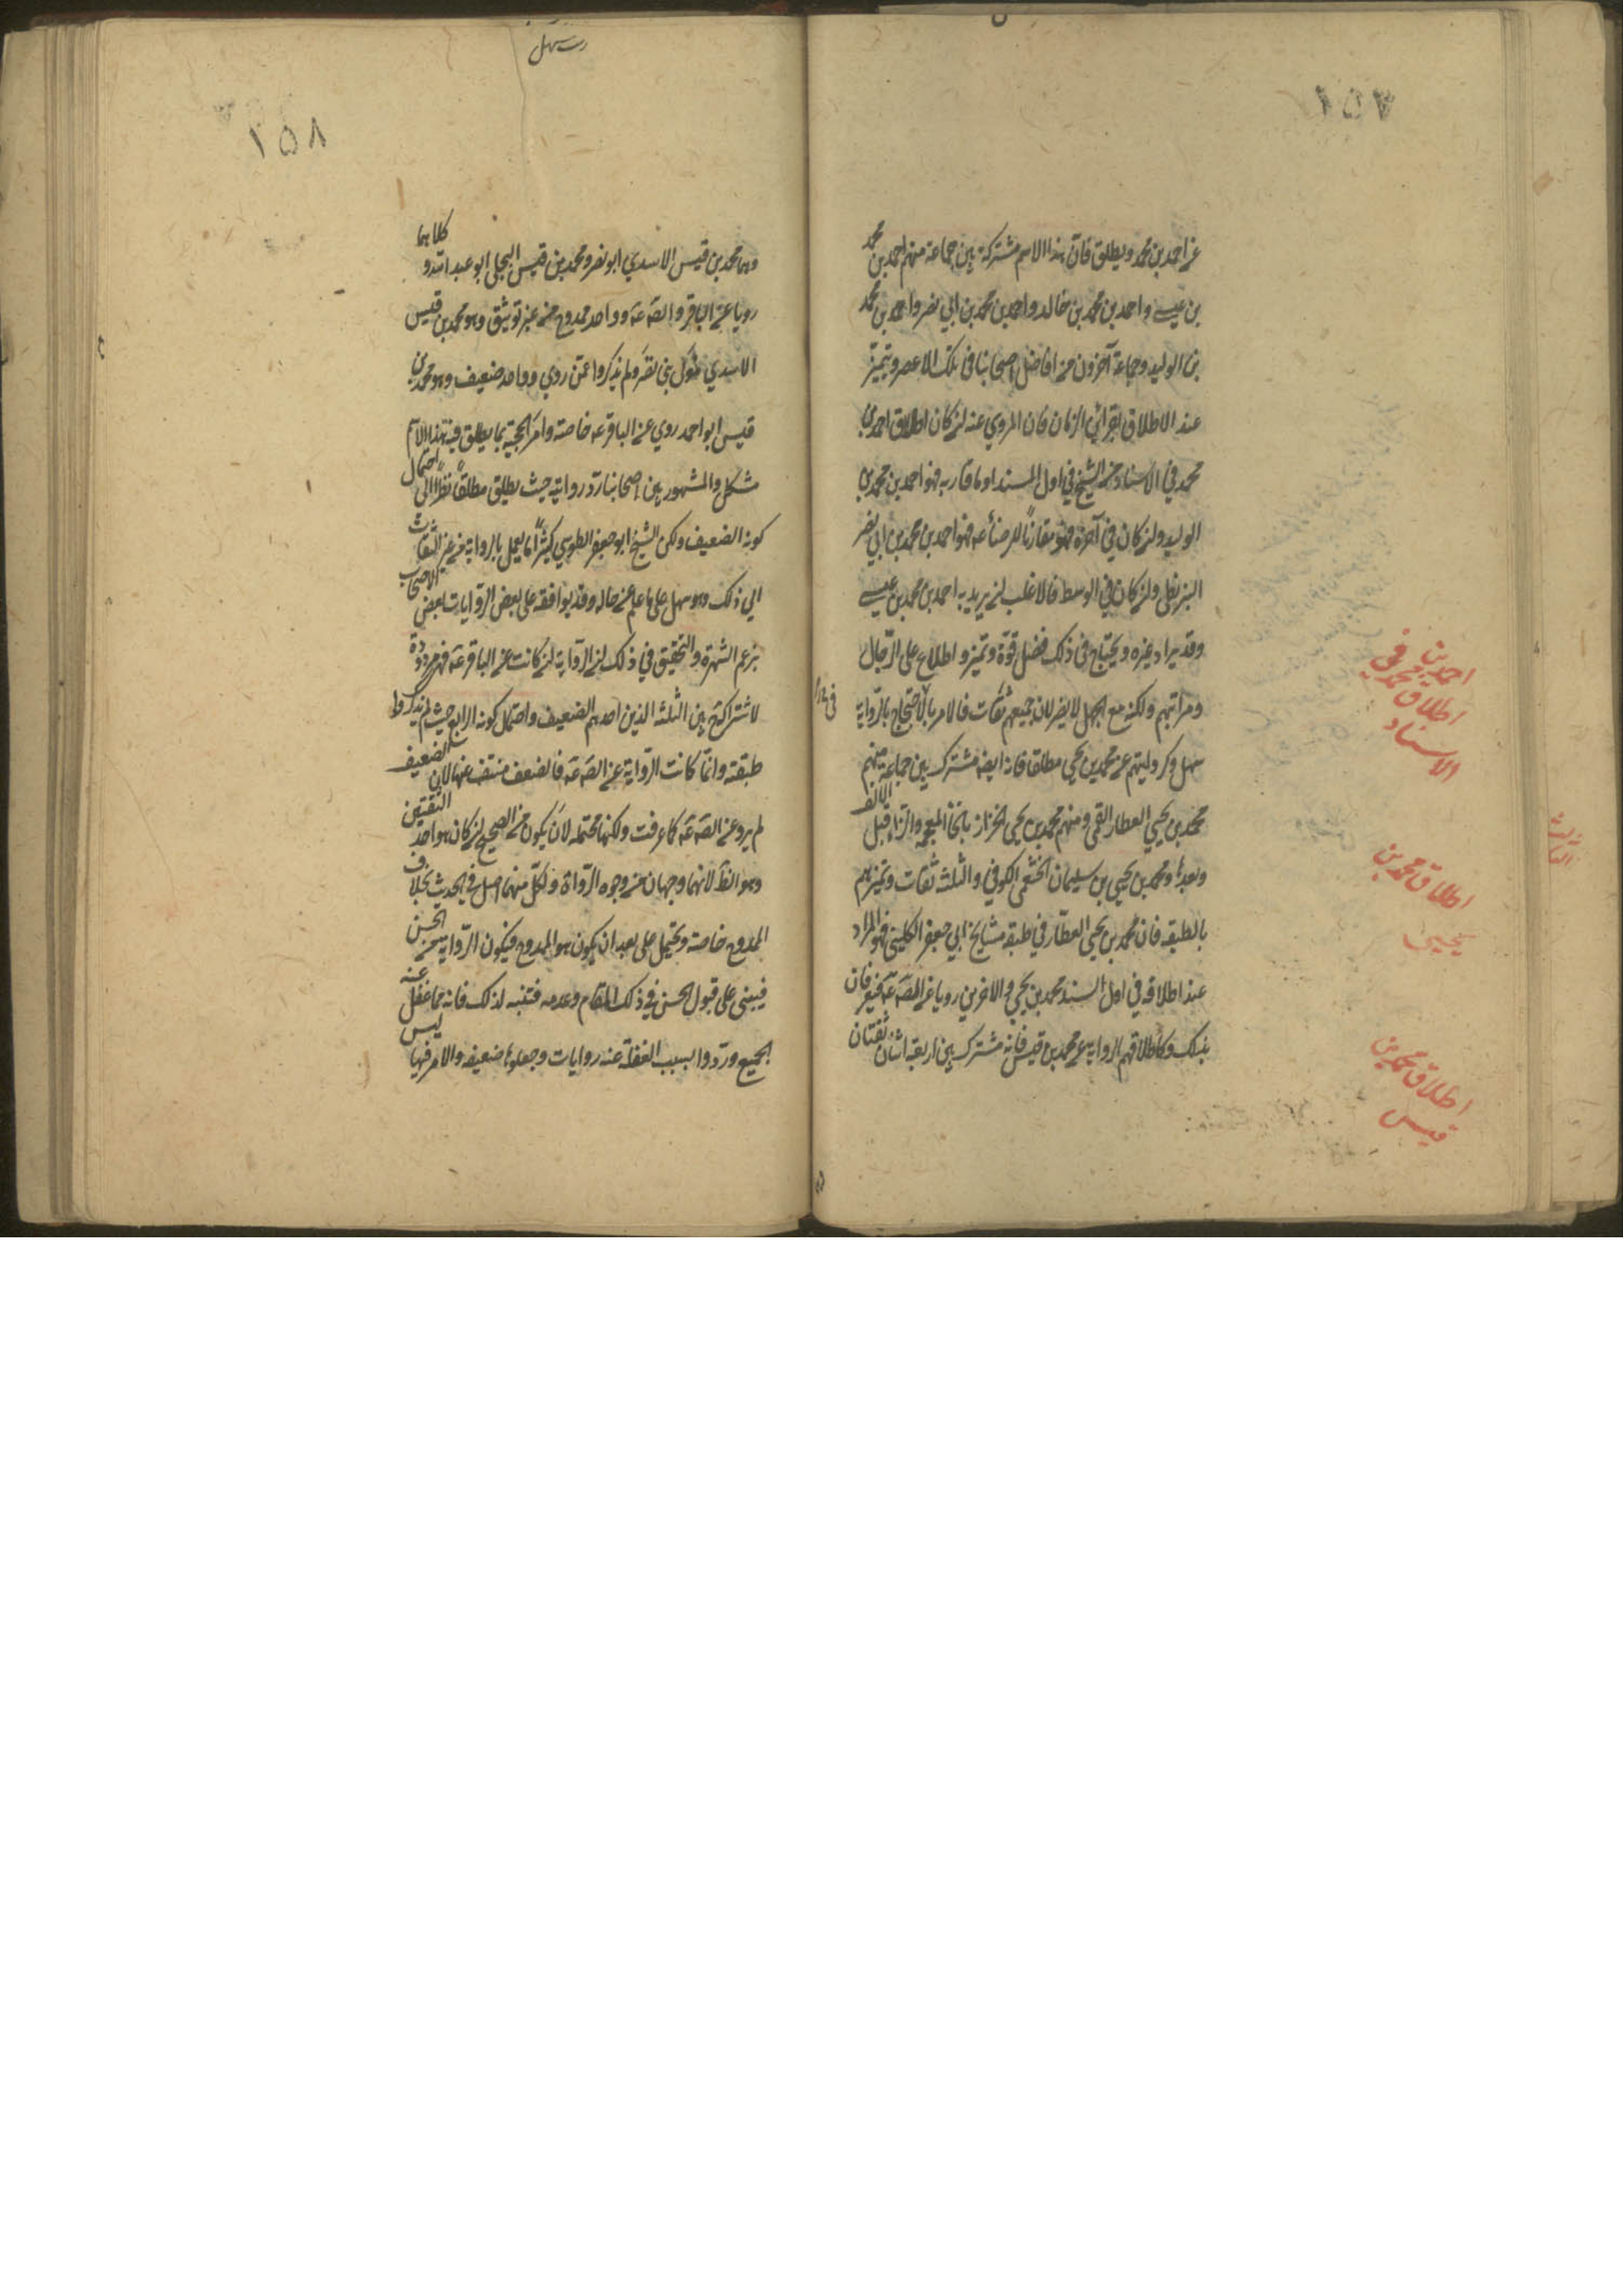 ١٥٧
عن احمد بن محمد ويطلق فان هذا الاسم مشترك بين جماعة منهم احمد بن محمد
بن عيسى واحمد بن محمد بن خالد واحمد بن محمد بن ابي نصر واحمد بن محمد
بن الوليد وجماعة آخرون من افاضل اصحابنا في تلك الاعصر ويتميز
عند الاطلاق بقرائن الزمان فان المروي عنه ان كان اطلاق احمد بن
محمد في الاسناد من الشيخ في اول السند او ما قاربه فهو احمد بن محمد بن
الوليد وان كان في آخره مقارناً للرضا ع فهو احمد بن محمد بن ابي نصر
البزنطي وان كان في الوسط فالاغلب ان يريد به احمد بن محمد بن عيسى
وقد يراد غيره ويحتاج في ذلك فضل قوة وتميز واطلاع على الرجال
ومراتبهم ولكنه مع الجهل لا يضر لان جميعهم ثقات فالامر بالاحتجاج بالرواية
سهل وكروايتهم عن محمد بن يحيى مطلقا فانه ايضا مشترك بين جماعة منهم
محمد بن يحيى العطار القمي ومنهم محمد بن يحيى الخزاز بالخاء المعجمة والزاء قبل الالف
وبعدها ومحمد بن يحيى بن سليمان الخثعمي الكوفي والثلث ثقات وتميزهم
بالطبقة فان محمد بن يحيى العطار في طبقة مشايخ ابي جعفر الكليني فهو المراد
عند اطلاقه في اول السند محمد بن يحيى والاخرين رويا عن الصّ عه فيعرفان
بذلك وكاطلاقهم الرواية عن محمد بن قيس فانه مشترك بين اربعة اثنان ثقتان
احمد بن
محمد في
اطلاق
الاسناد
اطلاق محمد بن
يحيى
اطلاق محمد بن
قيس
١٥٨
وهما محمد بن قيس الاسدي ابو نصر ومحمد بن قيس البجلي ابو عبد الله وكلاهما
رويا عن الباقر والصّ عه وواحد ممدوح من غير توثيق وهو محمد بن قيس
الاسدي مولى بني نصر ولم يذكروا عمن روي وواحد ضعيف وهو محمد بن
قيس ابو احمد روي عن الباقر عه خاصته وامر الحجية بما يطلق فيه هذا الاسم
مشكل والمشهور بين اصحابنا رد روايته حيث يطلق مطلقاً نظراً الى احتمال
كونه الضعيف ولكن الشيخ ابو جعفر الطوسي كثيراً ما يعمل بالرواية من غير التفات
الى ذلك وهو سهل على ما علم من حاله وقد يوافقه على بعض الروايات بعض الاصحاب
بزعم الشهرة والتحقيق في ذلك ان الرواية ان كانت عن الباقر عه فهي مردودة
لاشتراكه بين الثلثة الذين احدهم الضعيف واحتمال كونه الرابع حيث لم يذكروا
طبقته وان كانت الرواية عن الصّ عه فالضعف منتف عنها لان الضعيف
لم يرو عن الصّ عه كما عرفت ولكنها محتملة لان يكون من الصحيح ان كان هو احد الثقتين
وهو الظ لانهما وجهان من وجوه الرواة ولكل منهما اصل في الحديث بخلاف
الممدوح خاصة ويحتمل على بعد ان يكون هو الممدوح فيكون الرواية من الحسن
فيبنى على قبول الحسن في ذلك المقام وعدمه فتنبه لذلك فانه مما غفل عنه
الجميع وردوا بسبب الغفلة عنه روايات وجعلوها ضعيفه والامر فيها ليس